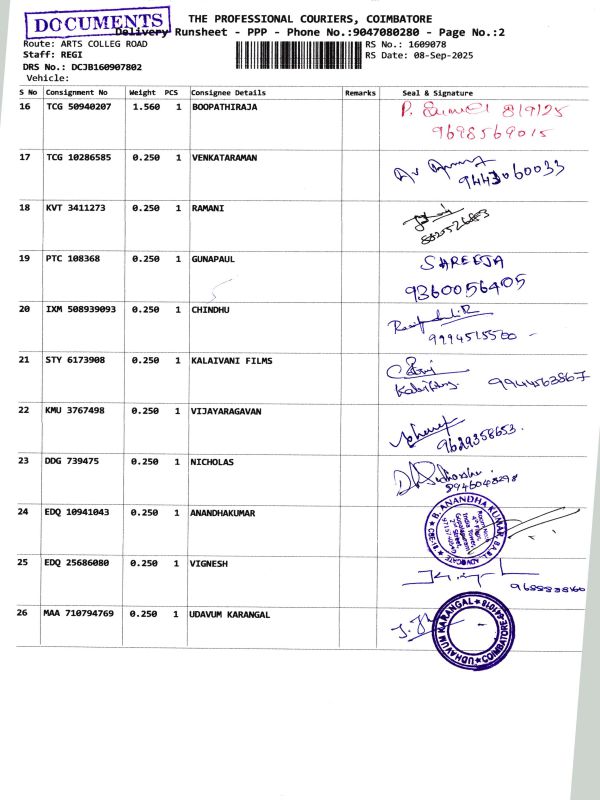 DOCUMENTS
THE PROFESSIONAL COURIERS, COIMBATORE
Delivery Runsheet - PPP - Phone No.:9047080280 - Page No.:2
Route: ARTS COLLEG ROAD
RS No.: 1609078
Staff: REGI
RS Date: 08-Sep-2025
DRS No.: DCJB160907802
Vehicle:
S No Consignment No Weight PCS Consignee Details Remarks Seal & Signature
16 TCG 50940207 1.560 1 BOOPATHIRAJA 8/9/25
9698569015
17 TCG 10286585 0.250 1 VENKATARAMAN
9443060033
18 KVT 3411273 0.250 1 RAMANI
19 PTC 108368 0.250 1 GUNAPAUL SHREEJA
9360056405
20 IXM 508939093 0.250 1 CHINDHU
9994515500 -
21 STY 6173908 0.250 1 KALAIVANI FILMS
9944563867
22 KMU 3767498 0.250 1 VIJAYARAGAVAN
9629358653.
23 DDG 739475 0.250 1 NICHOLAS
24 EDQ 10941043 0.250 1 ANANDHAKUMAR
B. ANANDHA KUMAR, BA.BL ADVOCATE
25 EDQ 25686080 0.250 1 VIGNESH
26 MAA 710794769 0.250 1 UDAVUM KARANGAL
UDHAVUM KARANGAL
COIMBATORE